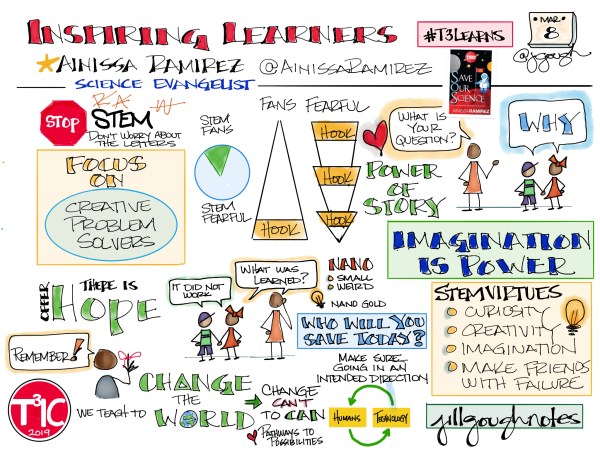 INSPIRING LEARNERS
#T3LEARNS
MAR
8
@jgough
AINISSA RAMIREZ @AINISSARAMIREZ
SCIENCE EVANGELIST
SAVE
OUR
SCIENCE
AINISSA RAMIREZ
STOP
STEM
DON'T WORRY ABOUT
THE LETTERS
FOCUS
ON
CREATIVE
PROBLEM
SOLVERS
STEM
FANS
STEM
FEARFUL
FANS FEARFUL
HOOK
HOOK
HOOK
HOOK
WHAT IS
YOUR
QUESTION?
WHY
POWER
OF
STORY
IMAGINATION
IS POWER
OFFER
THERE IS
HOPE
IT DID NOT
WORK
WHAT WAS
LEARNED?
NANO
SMALL
WEIRD
NANO GOLD
WHO WILL YOU
SAVE TODAY?
STEM VIRTUES
CURIOSITY
CREATIVITY
IMAGINATION
MAKE FRIENDS
WITH FAILURE
REMEMBER!
T3IC
2019
WE TEACH TO
CHANGE
THE
WORLD
CHANGE
CAN'T
TO CAN
PATHWAYS TO
POSSIBILITIES
MAKE SURE...
GOING IN AN
INTENDED DIRECTION
HUMANS
TECHNOLOGY
jillgoughnotes